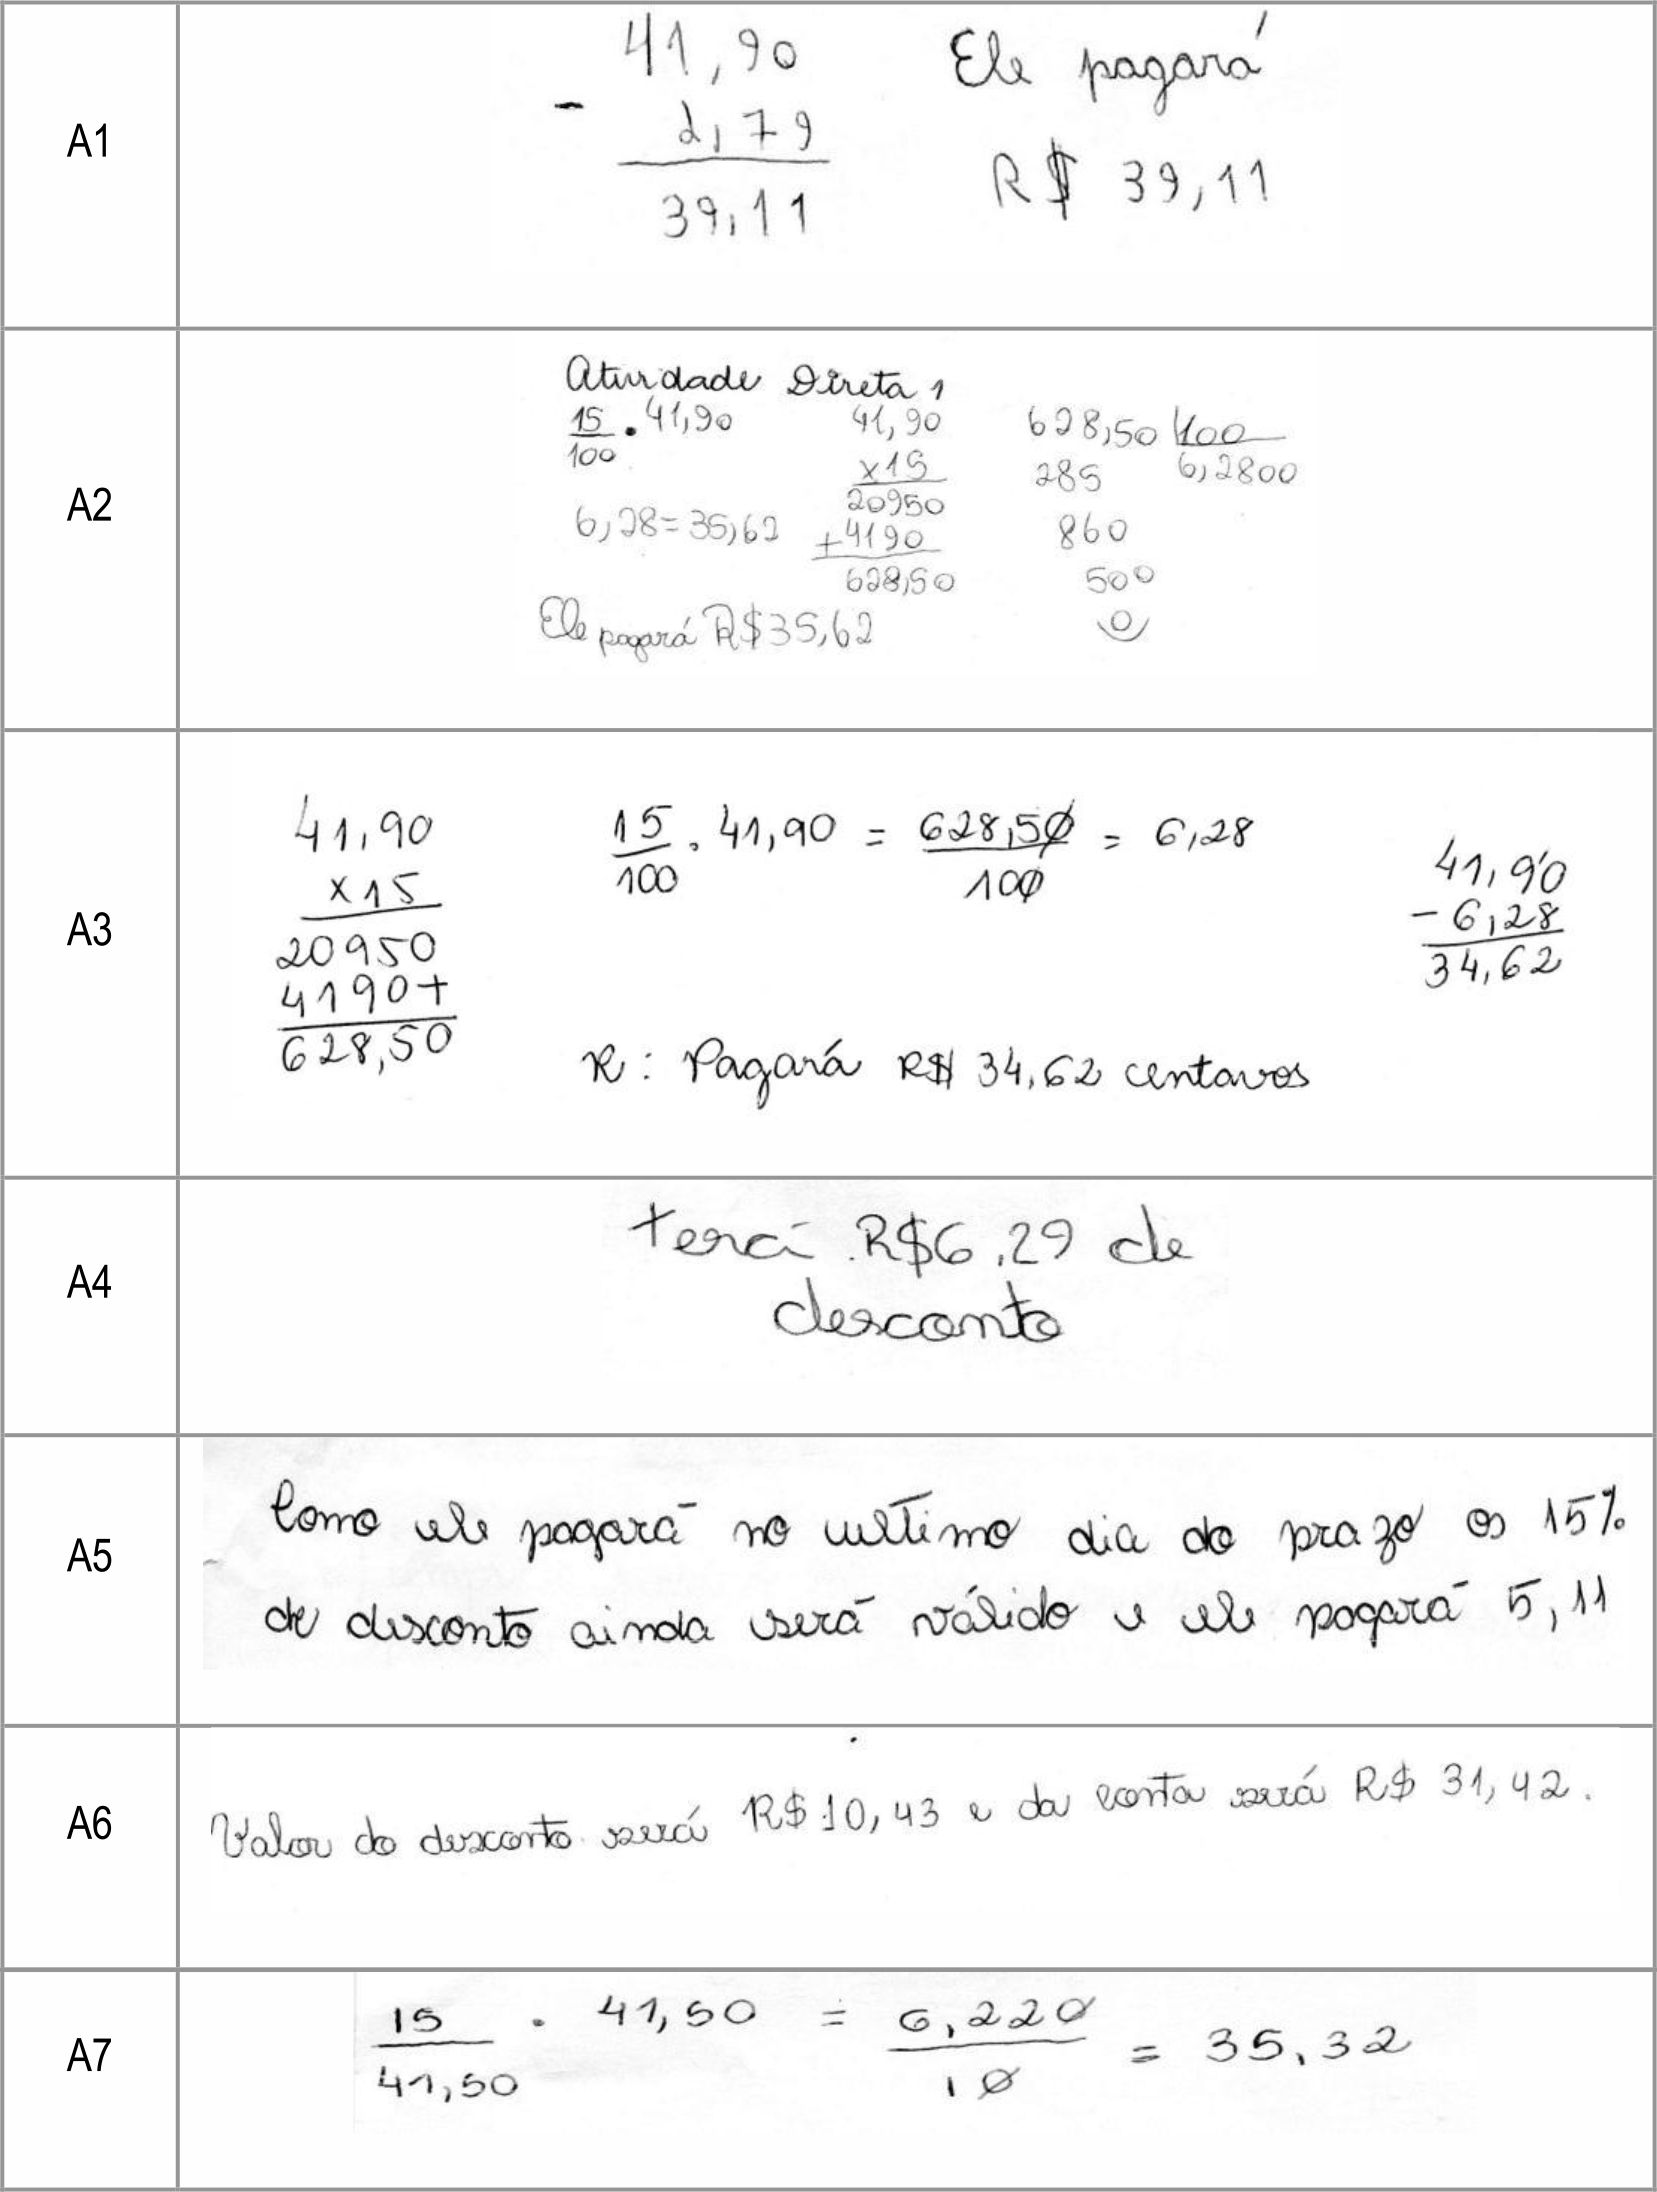 A1
41,90
- 2,79
39,11
Ele pagará
R$ 39,11
A2
Atividade Direta 1
15/100 . 41,90
6,28=35,62
41,90
x15
20950
+4190
628,50
628,50 100
285 6,2800
860
500
0
Ele pagará R$35,62
A3
41,90
x15
20950
4190+
628,50
15/100 . 41,90 = 628,50/100 = 6,28
41,90
- 6,28
34,62
R: Pagará R$ 34,62 centavos
A4
terá R$6,29 de
desconto
A5
Como ele pagará no ultimo dia do prazo os 15%
de desconto ainda será válido e ele pagará 5,11
A6
Valor do desconto será R$10,43 e da conta será R$ 31,42.
A7
15/41,50 . 41,50 = 6,220/10 = 35,32